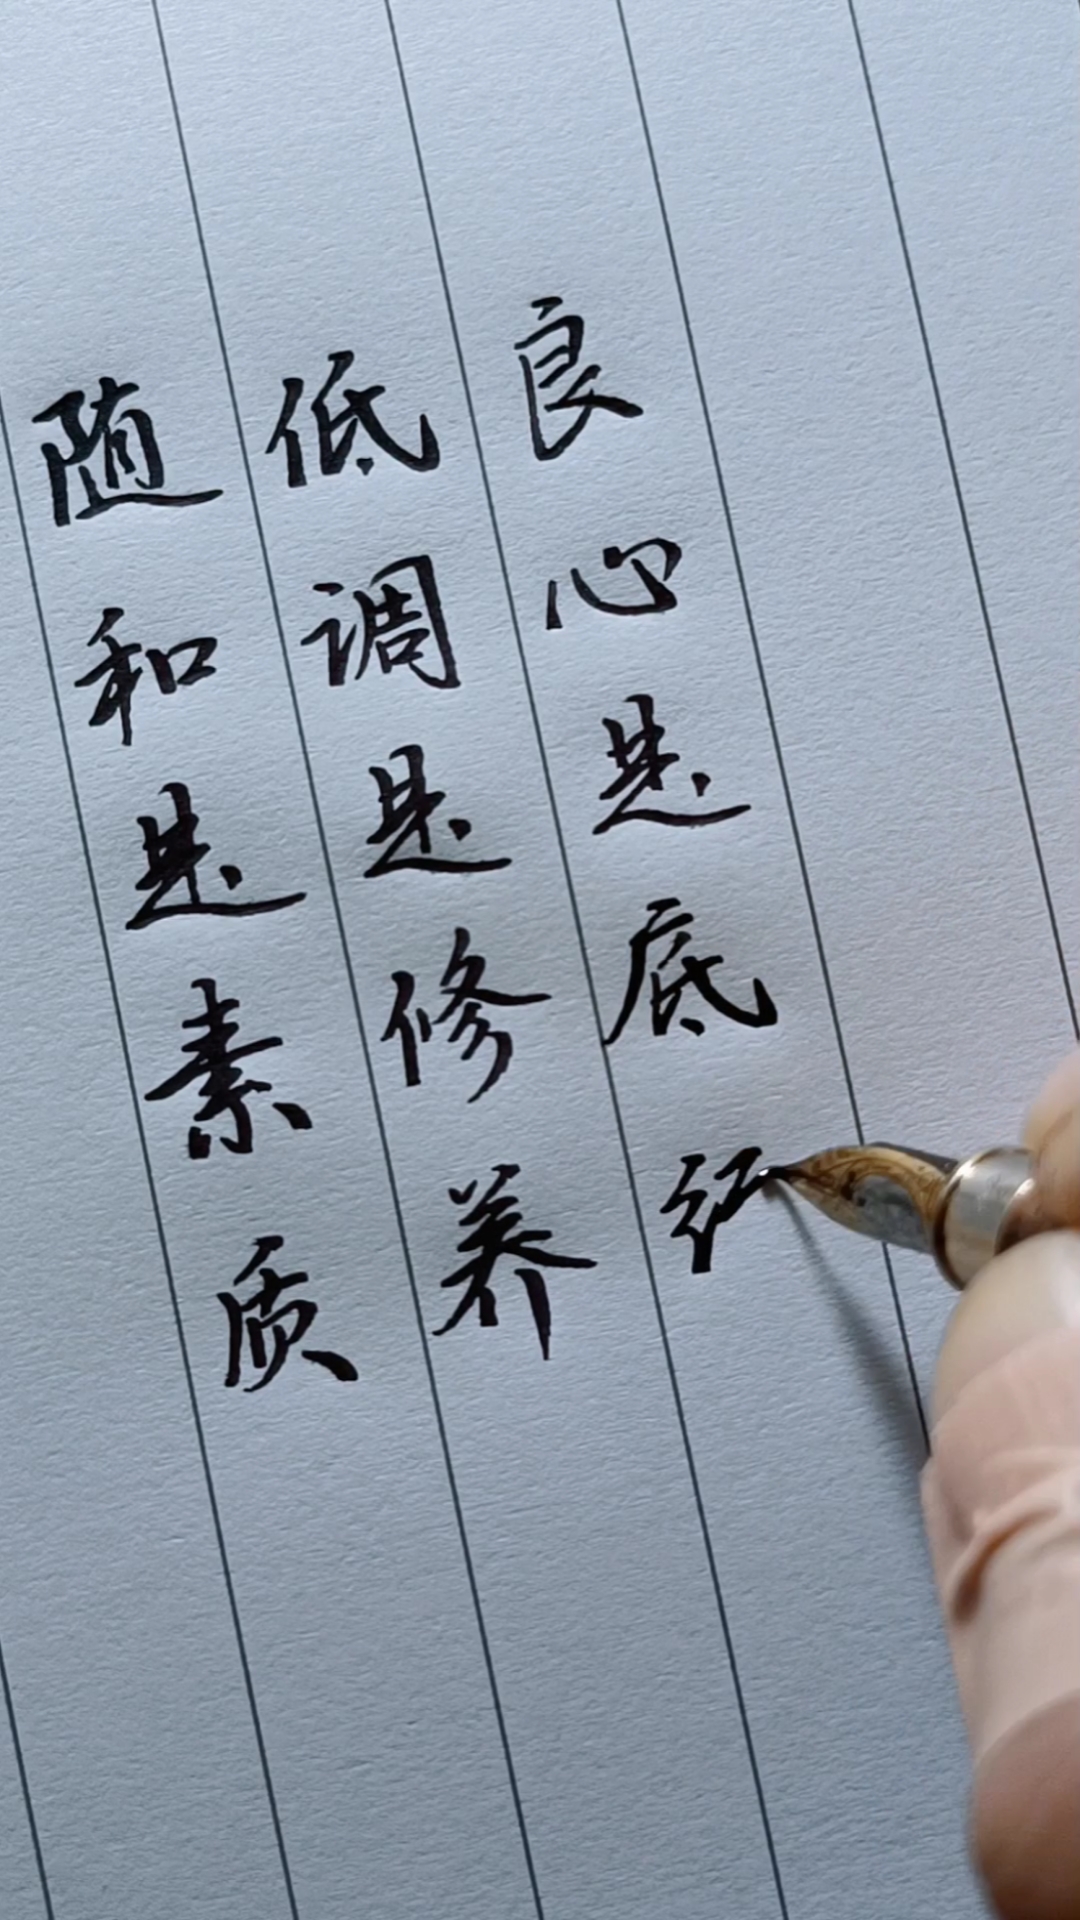 随和是素质
低调是修养
良心是底